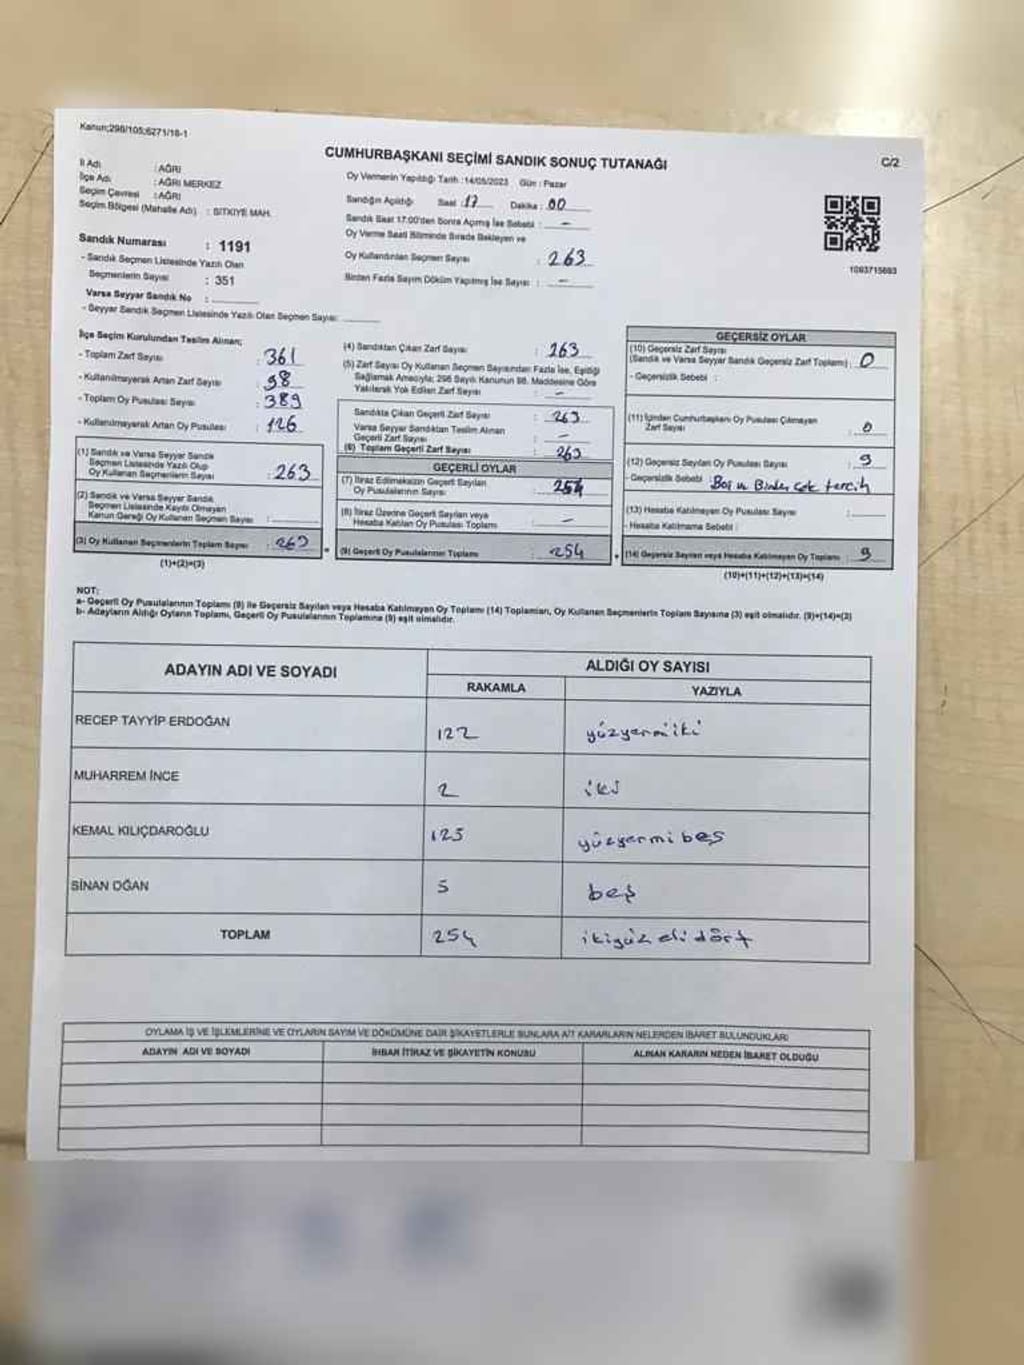 Kanun;298/105;6271/18-1
CUMHURBAŞKANI SEÇİMİ SANDIK SONUÇ TUTANAĞI
C/2
İl Adı : AĞRI
İlçe Adı : AĞRI MERKEZ
Seçim Çevresi : AĞRI
Seçim Bölgesi (Mahalle Adı) : SITKIYE MAH.
Sandık Numarası : 1191
- Sandık Seçmen Listesinde Yazılı Olan
Seçmenlerin Sayısı : 351
Varsa Seyyar Sandık No :
- Seyyar Sandık Seçmen Listesinde Yazılı Olan Seçmen Sayısı:
Oy Vermenin Yapıldığı Tarih :14/05/2023 Gün : Pazar
Sandığın Açıldığı Saat :17 Dakika : 00
Sandık Saat 17:00'den Sonra Açımış İse Sebebi : -
Oy Verme Saati Bitiminde Sırada Bekleyen ve
Oy Kullandırılan Seçmen Sayısı : 263
Birden Fazla Sayım Döküm Yapılmış İse Sayısı : -
1093715693
İlçe Seçim Kurulundan Teslim Alınan;
- Toplam Zarf Sayısı : 361
- Kullanılmayarak Artan Zarf Sayısı : 98
- Toplam Oy Pusulası Sayısı : 389
- Kullanılmayarak Artan Oy Pusulası : 126
(1) Sandık ve Varsa Seyyar Sandık
Seçmen Listesinde Yazılı Olup
Oy Kullanan Seçmenlerin Sayısı : 263
(2) Sandık ve Varsa Seyyar Sandık
Seçmen Listesinde Kaydı Olmayan
Kanun Gereği Oy Kullanan Seçmen Sayısı :
(3) Oy Kullanan Seçmenlerin Toplam Sayısı : 263
(1)+(2)=(3)
(4) Sandıktan Çıkan Zarf Sayısı : 263
(5) Zarf Sayısı Oy Kullanan Seçmen Sayısından Fazla İse, Eşitliği
Sağlamak Amacıyla; 298 Sayılı Kanunun 98. Maddesine Göre
Yakılarak Yok Edilen Zarf Sayısı : -
Sandıkta Çıkan Geçerli Zarf Sayısı : 263
Varsa Seyyar Sandıktan Teslim Alınan
Geçerli Zarf Sayısı : -
(6) Toplam Geçerli Zarf Sayısı : 263
GEÇERLİ OYLAR
(7) İtiraz Edilmeksizin Geçerli Sayılan
Oy Pusulalarının Sayısı : 254
(8) İtiraz Üzerine Geçerli Sayılan veya
Hesaba Katılan Oy Pusulası Toplamı : -
(9) Geçerli Oy Pusulalarının Toplamı : 254
GEÇERSİZ OYLAR
(10) Geçersiz Zarf Sayısı
(Sandık ve Varsa Seyyar Sandık Geçersiz Zarf Toplamı) : 0
- Geçersizlik Sebebi :
(11) İçinden Cumhurbaşkanı Oy Pusulası Çıkmayan
Zarf Sayısı : 0
(12) Geçersiz Sayılan Oy Pusulası Sayısı : 9
- Geçersizlik Sebebi : Boş ve Birden Çok tercih
(13) Hesaba Katılmayan Oy Pusulası Sayısı :
- Hesaba Katılmama Sebebi :
(14) Geçersiz Sayılan veya Hesaba Katılmayan Oy Toplamı : 9
(10)+(11)+(12)+(13)=(14)
NOT:
a- Geçerli Oy Pusulalarının Toplamı (9) ile Geçersiz Sayılan veya Hesaba Katılmayan Oy Toplamı (14) Toplamları, Oy Kullanan Seçmenlerin Toplam Sayısına (3) eşit olmalıdır. (9)+(14)=(3)
b- Adayların Aldığı Oyların Toplamı, Geçerli Oy Pusulalarının Toplamına (9) eşit olmalıdır.
ADAYIN ADI VE SOYADI
ALDIĞI OY SAYISI
RAKAMLA YAZIYLA
RECEP TAYYİP ERDOĞAN 122 yüzyermiiki
MUHARREM İNCE 2 iki
KEMAL KILIÇDAROĞLU 125 yüzyermi beş
SİNAN OĞAN 5 beş
TOPLAM 254 ikiyüz eli dört
OYLAMA İŞ VE İŞLEMLERİNE VE OYLARIN SAYIM VE DÖKÜMÜNE DAİR ŞİKAYETLERLE BUNLARA AİT KARARLARIN NELERDEN İBARET BULUNDUKLARI
ADAYIN ADI VE SOYADI İHBAR İTİRAZ VE ŞİKAYETİN KONUSU ALINAN KARARIN NEDEN İBARET OLDUĞU